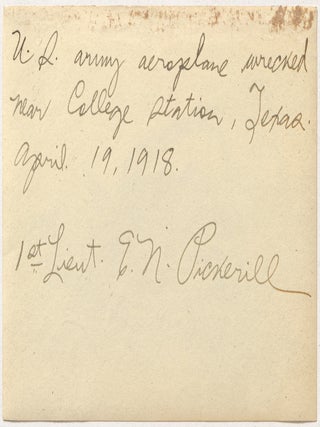 U.S. army aeroplane wrecked
near College Station, Texas.
April 19, 1918.
1st Lieut. E. N. Pickerill